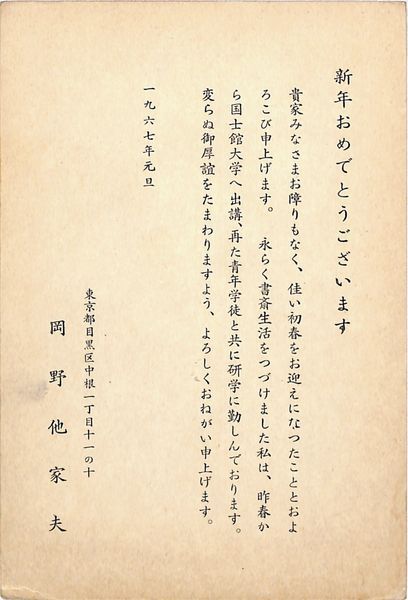 新年おめでとうございます
貴家みなさまお障りもなく、佳い初春をお迎えになつたこととおよ
ろこび申上げます。 永らく書斎生活をつづけました私は、昨春か
ら国士館大学へ出講、再た青年学徒と共に研学に勤しんでおります。
変らぬ御厚誼をたまわりますよう、よろしくおねがい申上げます。
一九六七年元旦
東京都目黒区中根一丁目十一の十
岡野他家夫